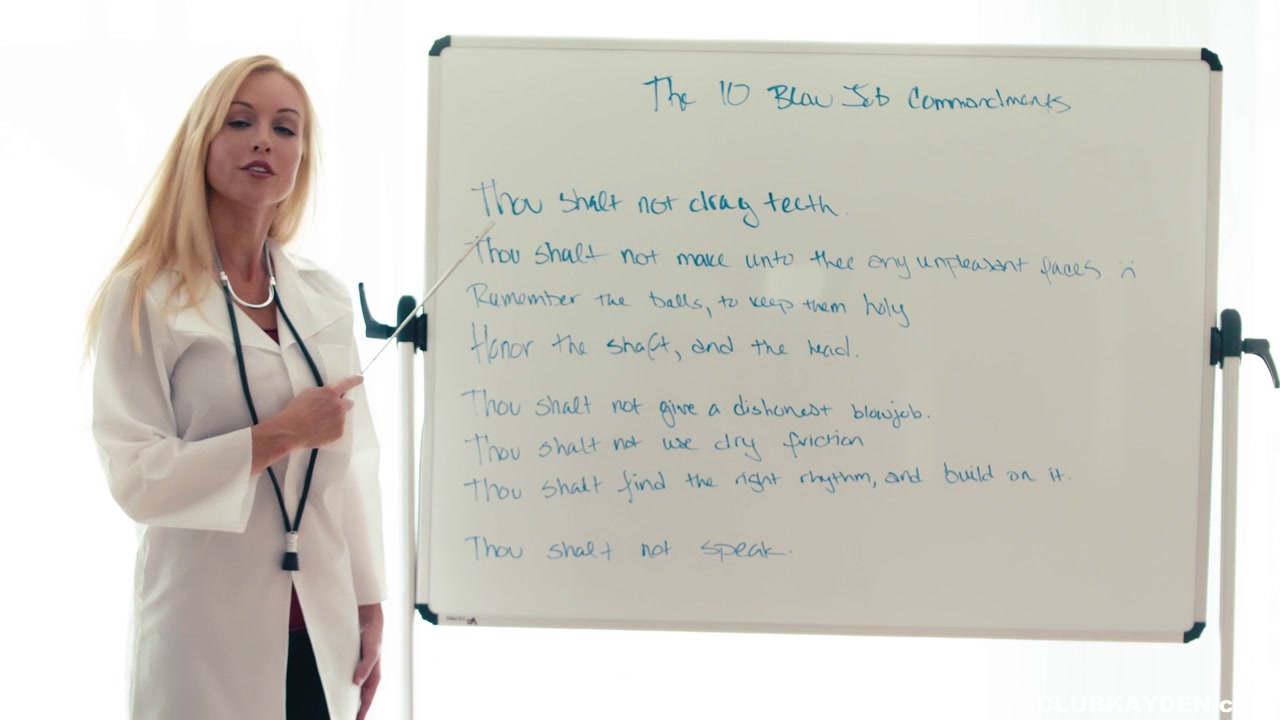 The 10 Blow Job Commandments
Thou shalt not drag teeth.
Thou shalt not make unto thee any unpleasant faces
Remember the balls, to keep them holy
Honor the shaft, and the head.
Thou shalt not give a dishonest blowjob.
Thou shalt not use dry friction
Thou shalt find the right rhythm, and build on it.
Thou shalt not speak.
CLUBKAYDEN.c